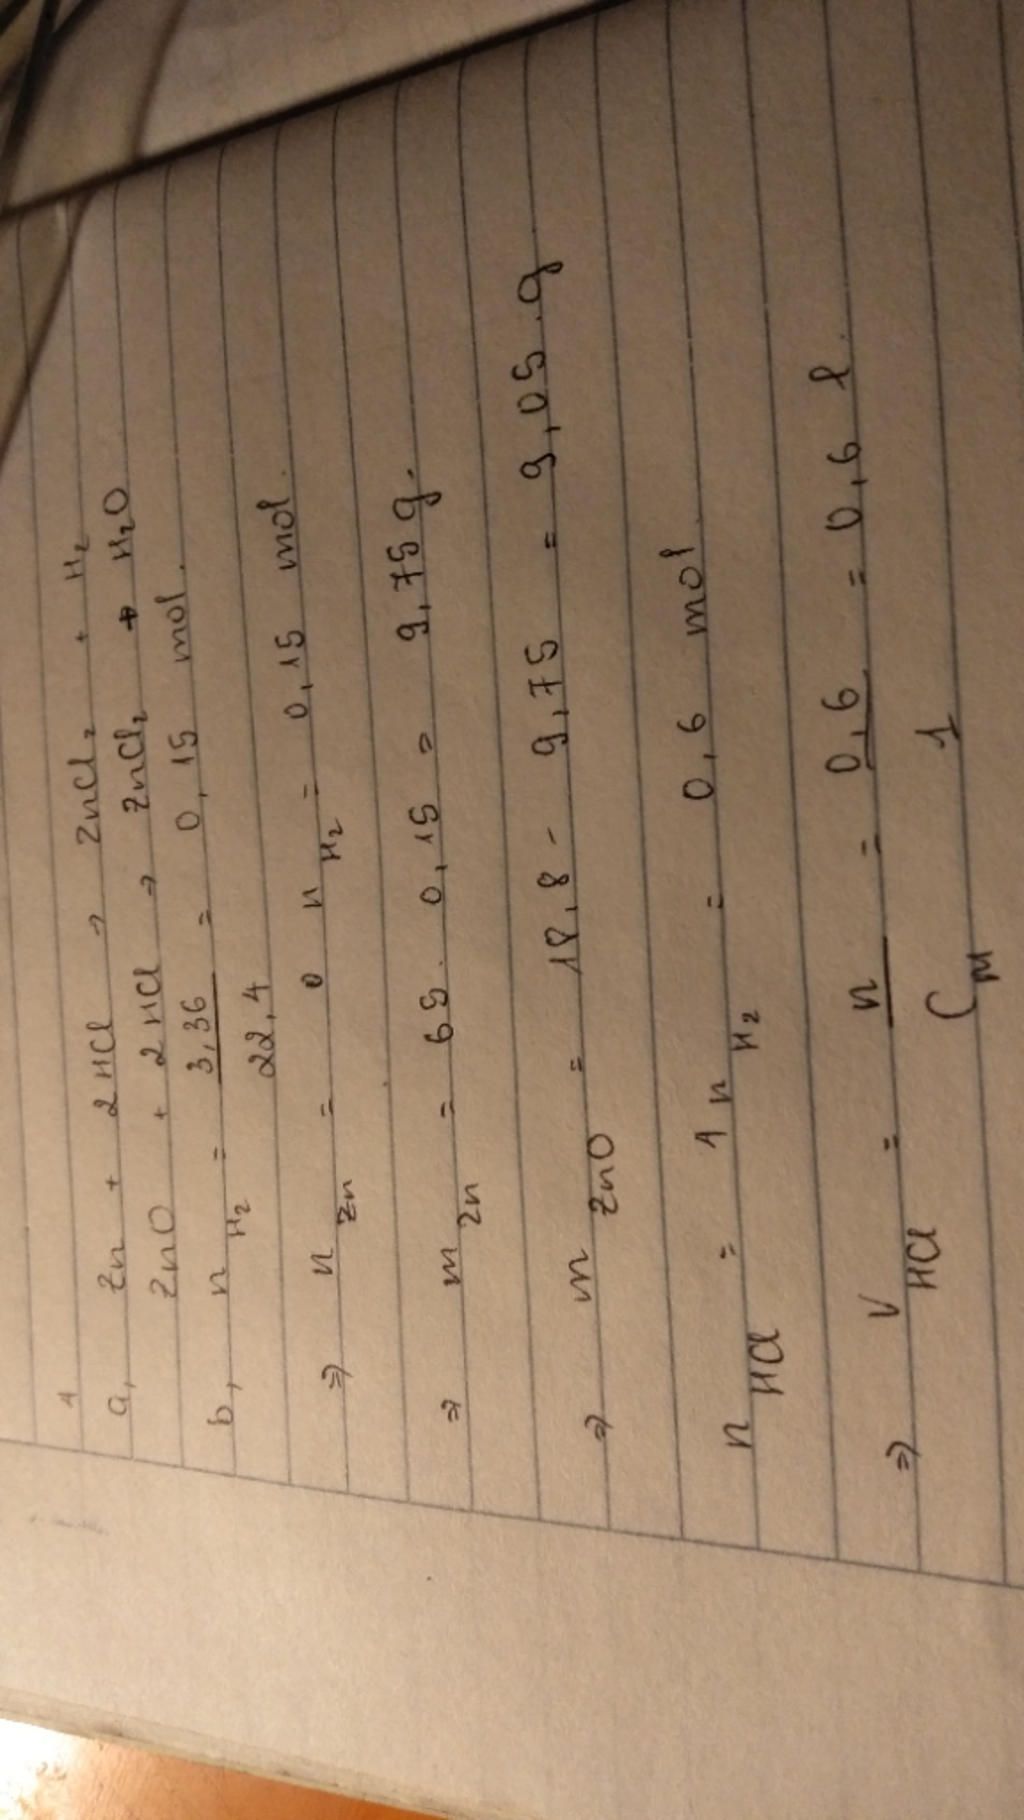 1
a, Zn + 2HCl → ZnCl₂ + H₂
ZnO + 2HCl → ZnCl₂ + H₂O
b, n H₂ = 3,36 / 22,4 = 0,15 mol.
⇒ n Zn = n H₂ = 0,15 mol.
⇒ m Zn = 65 . 0,15 = 9,75 g.
⇒ m ZnO = 18,8 - 9,75 = 9,05 . g
n HCl = 4 n H₂ = 0,6 mol
⇒ V HCl = n / Cm = 0,6 / 1 = 0,6 l.